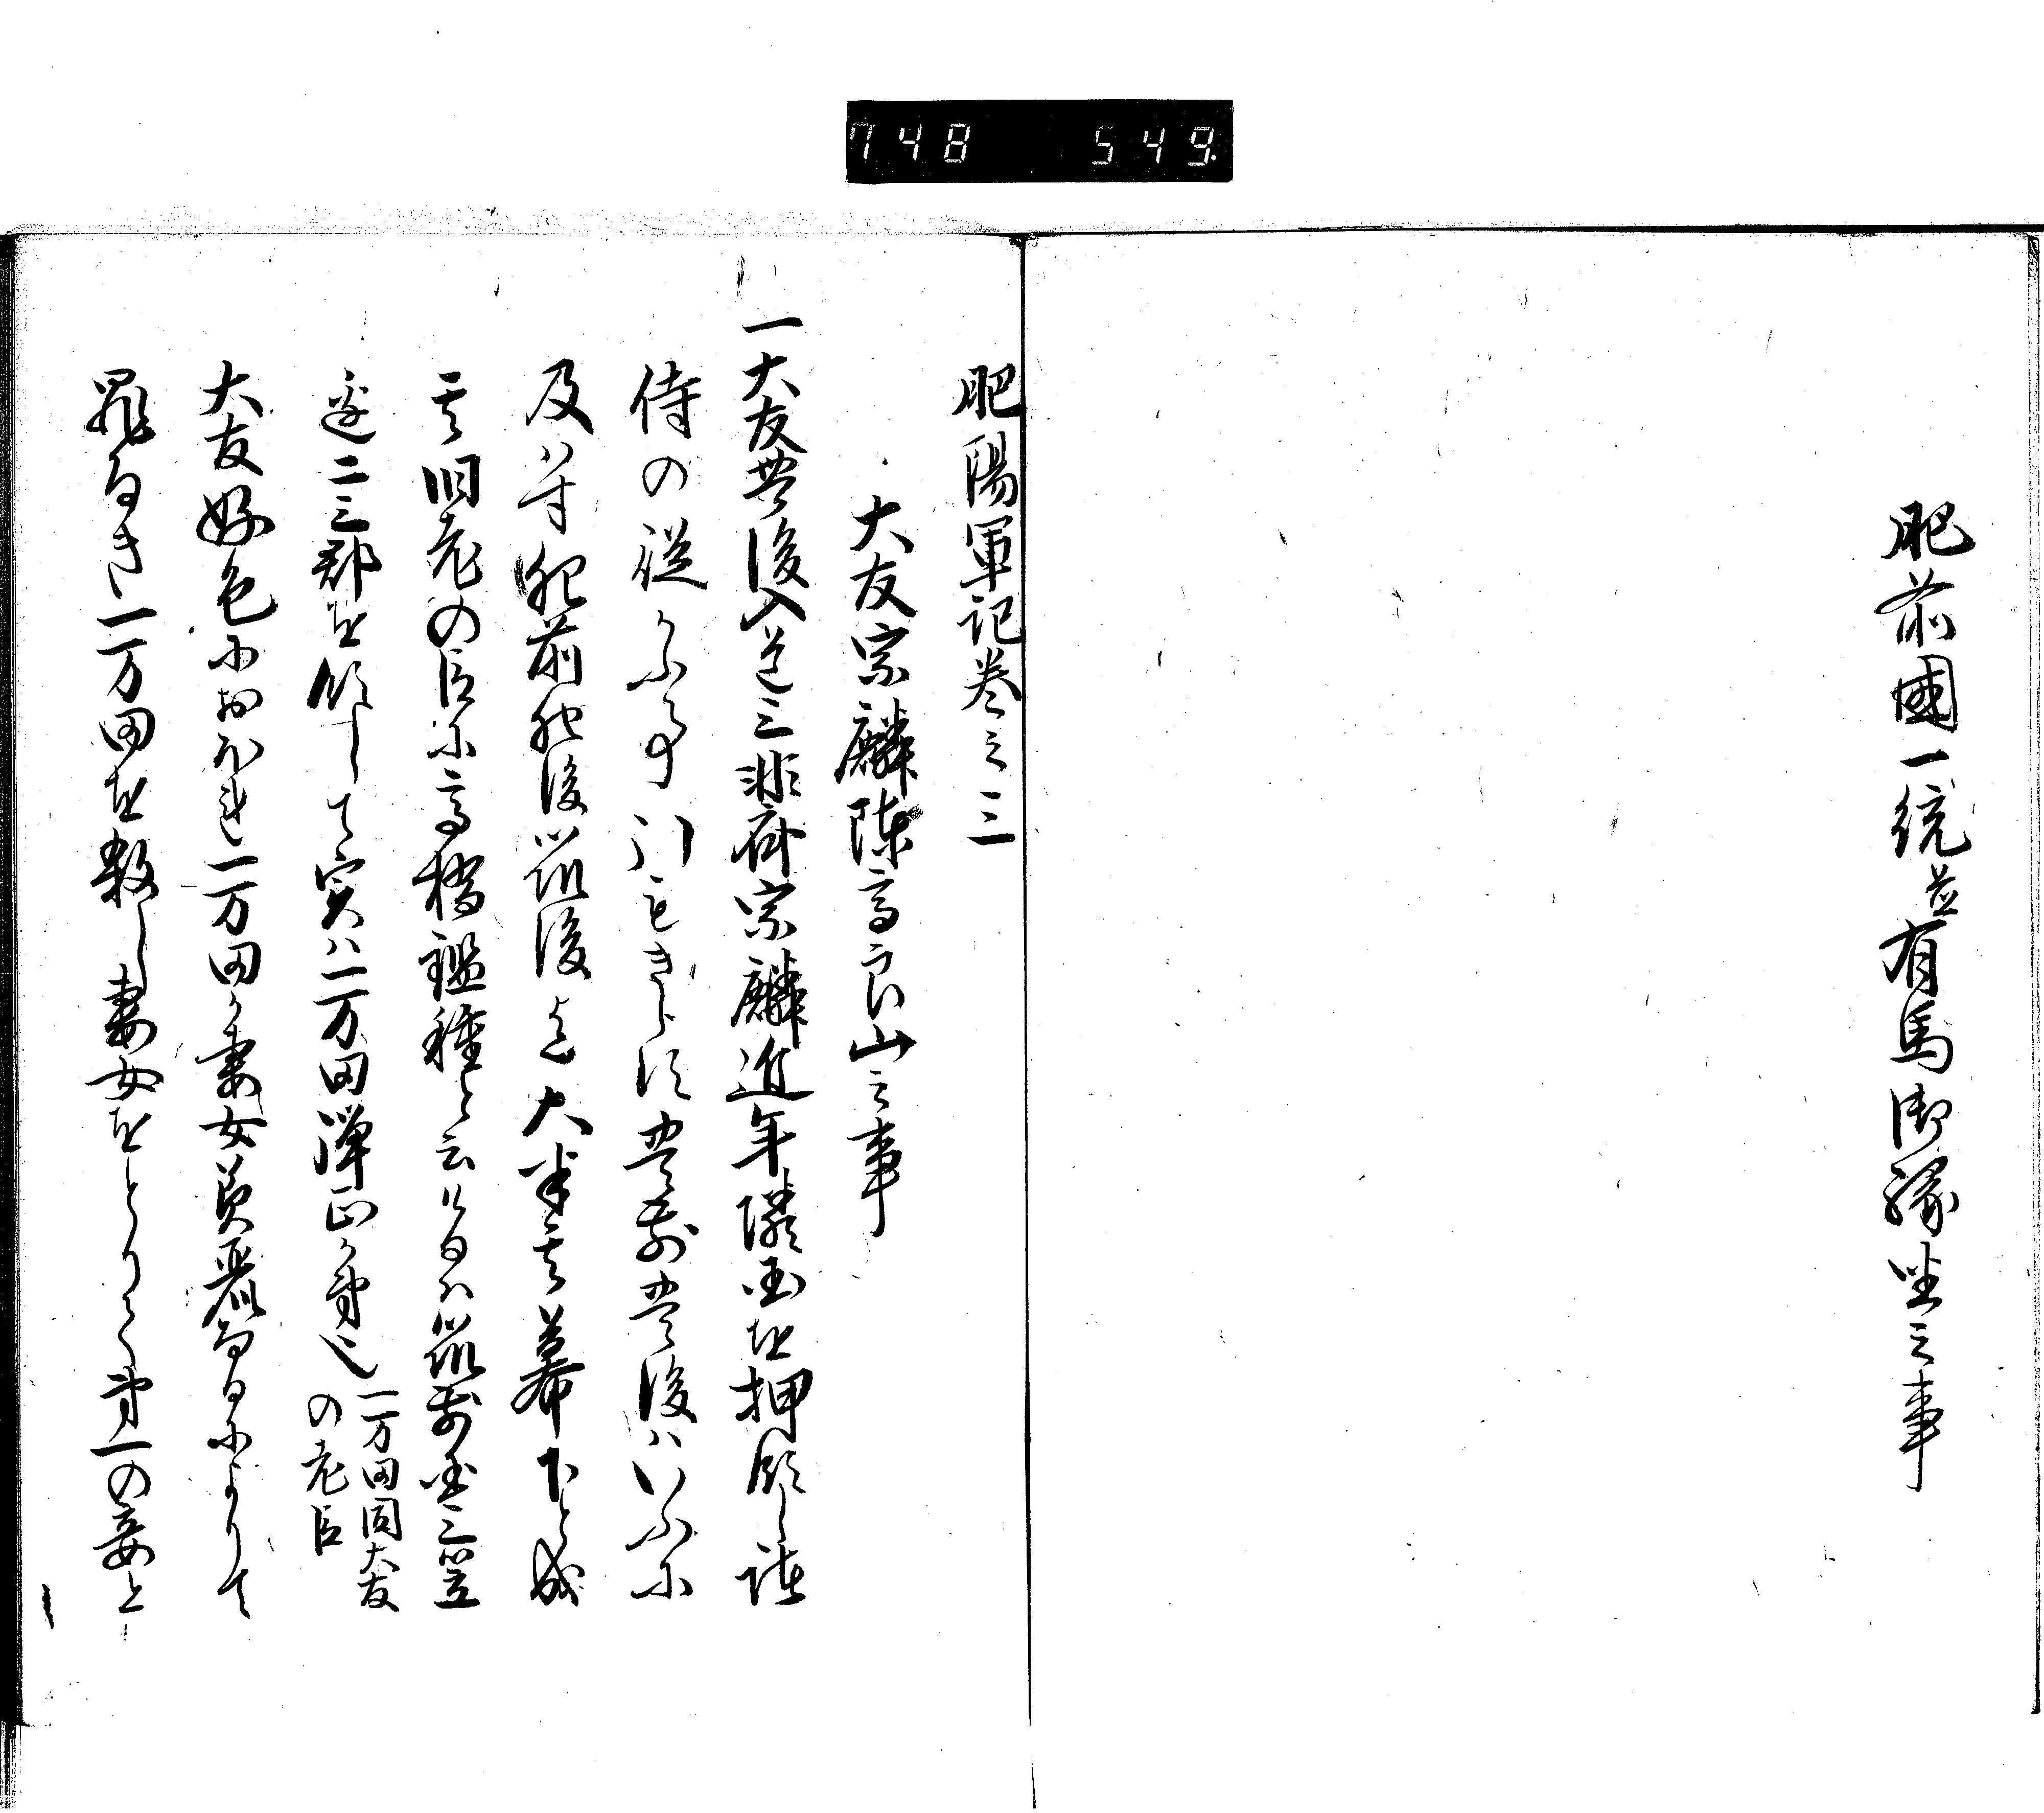 748 549.
肥前國一統並有馬御縁坐之事
肥陽軍記巻之三
大友宗麟陳高良山之事
一大友豊後入道三非斎宗麟近年隣国を押領し諸
侍の従かふ事引もきらす豊前豊後ハいふに
及ハす肥前肥後筑後迄大半其幕下と成
其旧老の臣に高橋鑑種と云けるハ筑前国三笠
辺二三郡を領して実ハ一万田弾正か弟也
一万田同大友
の老臣
大友好色におほれ一万田か妻女美麗なるによりて
罪なき一万田を殺し妻女をとりて第一の妾と